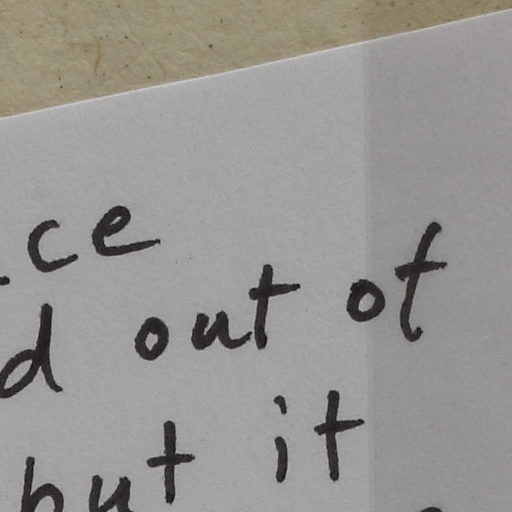 ce
d out of
but it